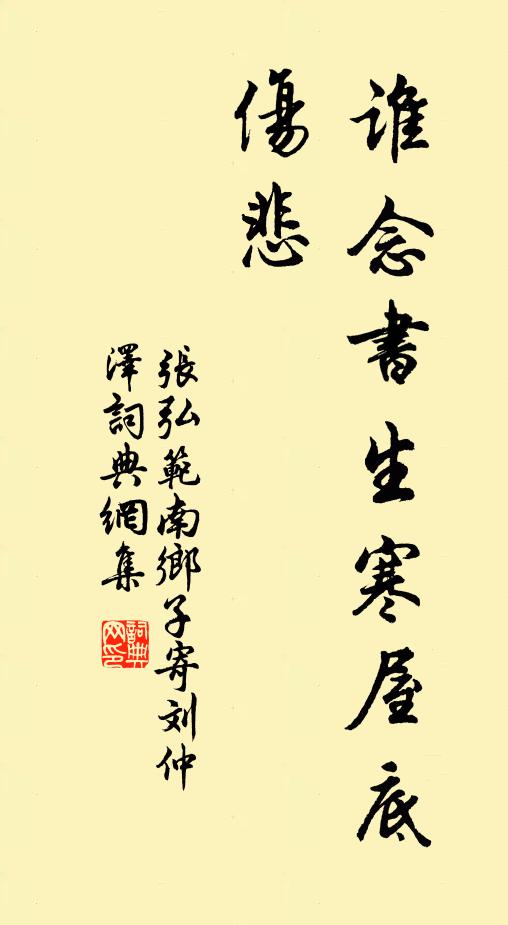 谁念書生寒屋底
傷悲
張弘範南鄉子寄刘仲
澤詞典網集
詞典
网印